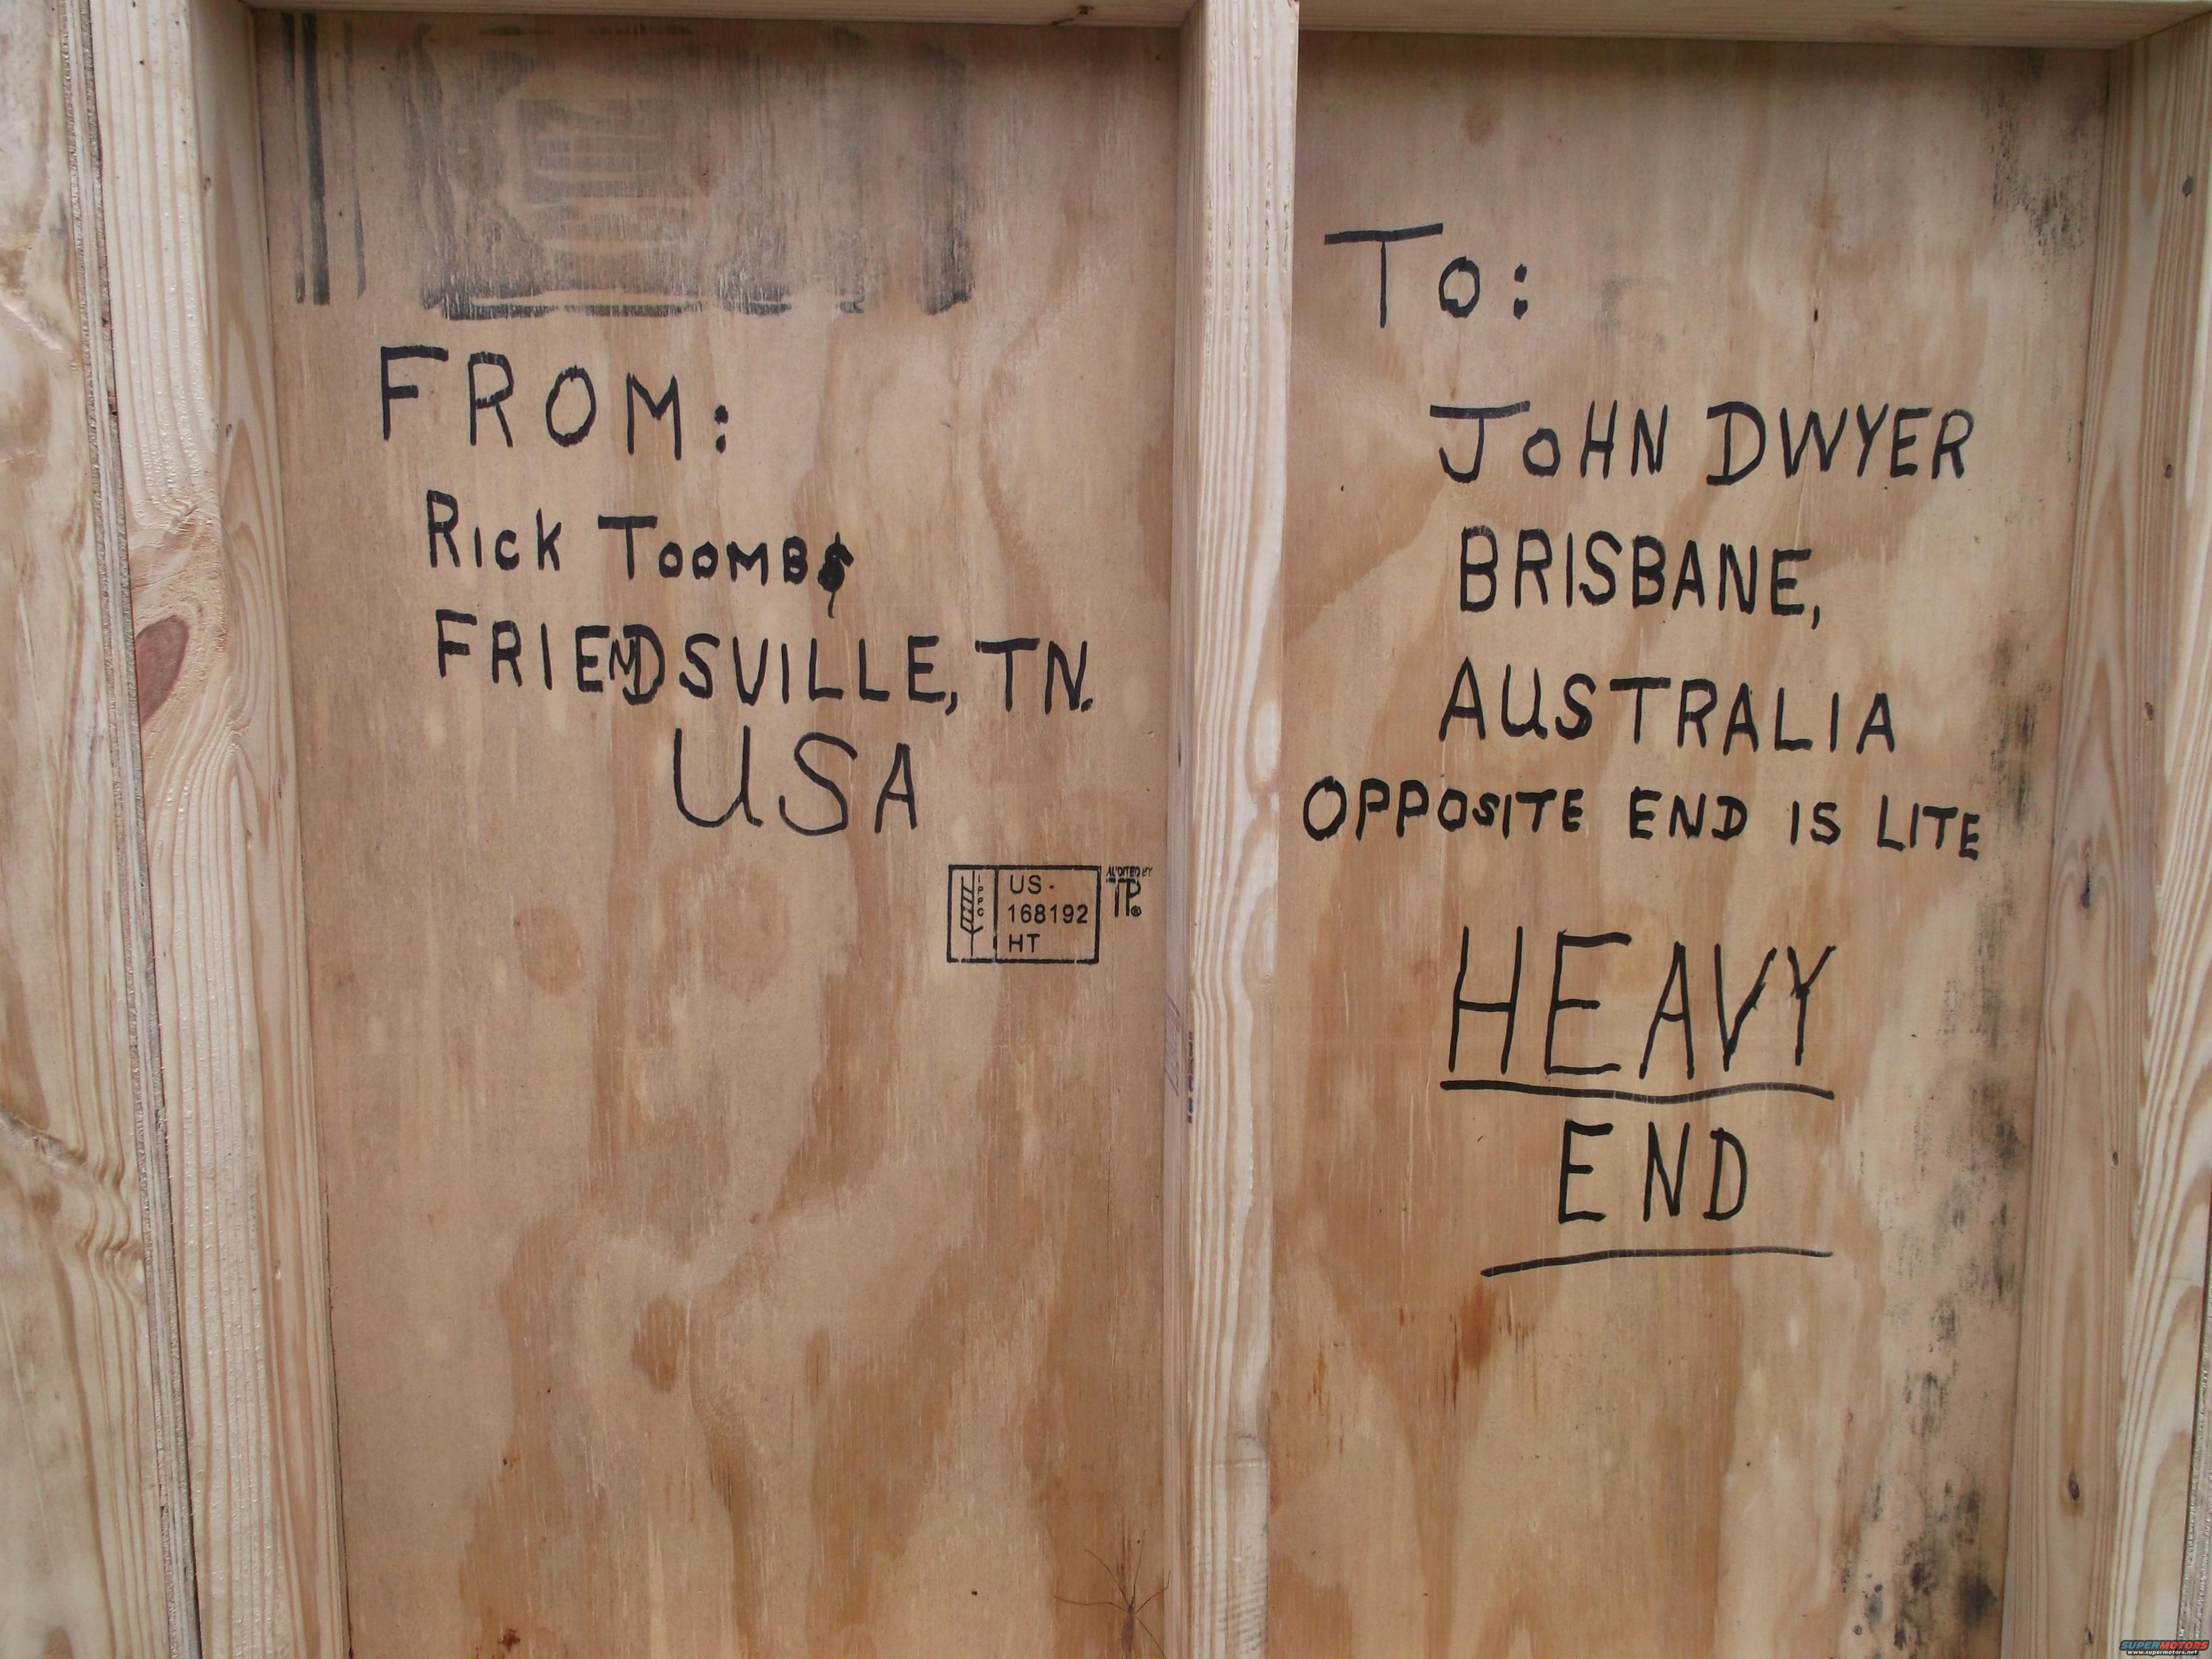 FROM:
Rick Toombs
FRIENDSVILLE, TN.
USA
IPPC
US-
168192
HT
AUDITED BY
TP®
To:
JOHN DWYER
BRISBANE,
AUSTRALIA
OPPOSITE END IS LITE
HEAVY
END
SUPERMOTORS
www.supermotors.net